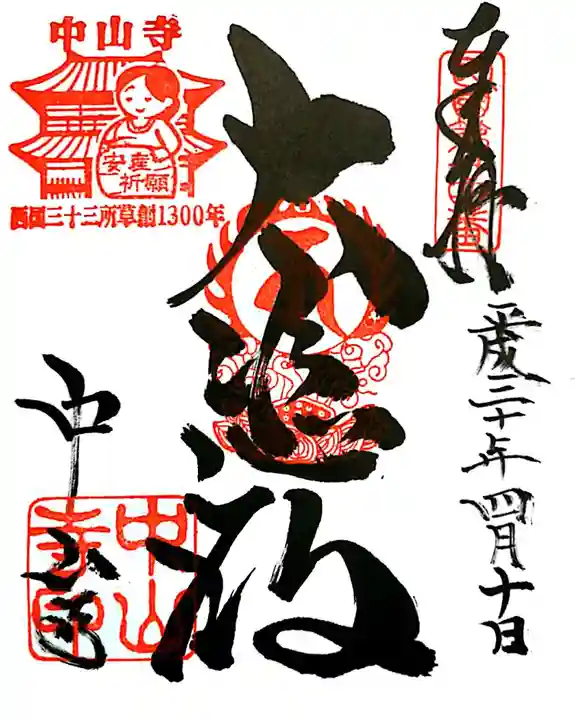 奉拝
平成三十年四月十日
大悲殿
中山寺
安産
祈願
西国三十三所草創1300年
中山寺
中山
寺印